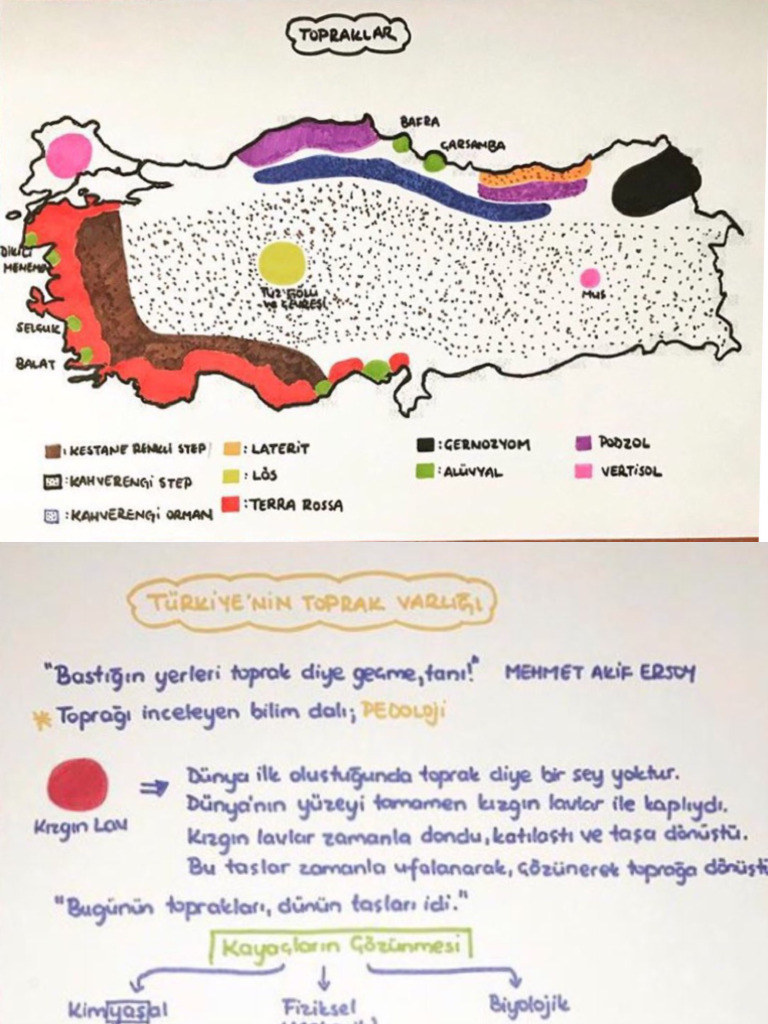 TOPRAKLAR
BAFRA
ÇARŞAMBA
DİKİLİ
MENEMEN
TUZ GÖLÜ
VE ÇEVRESİ
MUŞ
SELÇUK
BALAT
: KESTANE RENKLİ STEP
: LATERİT
: ÇERNOZYOM
: PODZOL
: KAHVERENGİ STEP
: LÖS
: ALÜVYAL
: VERTİSOL
: KAHVERENGİ ORMAN
: TERRA ROSSA
TÜRKİYE'NİN TOPRAK VARLIĞI
"Bastığın yerleri toprak diye geçme, tanı!" MEHMET AKİF ERSOY
* Toprağı inceleyen bilim dalı; PEDOLOJİ
Kızgın Lav
⇒ Dünya ilk oluştuğunda toprak diye bir şey yoktur.
Dünya'nın yüzeyi tamamen kızgın lavlar ile kaplıydı.
Kızgın lavlar zamanla dondu, katılaştı ve taşa dönüştü.
Bu taşlar zamanla ufalanarak, çözünerek toprağa dönüşt
"Bugünün toprakları, dünün taşları idi."
Kayaçların Çözünmesi
Kimyaşal Fiziksel Biyolojik